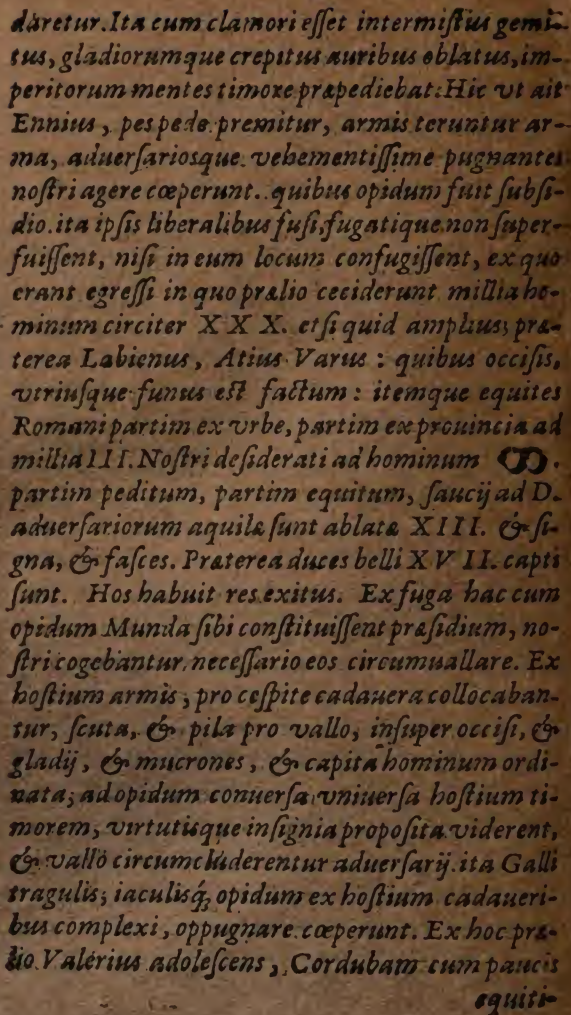 daretur. Ita cum clamori eſſet intermiſtus gemi-
tus, gladiorumque crepitus auribus oblatus, im-
peritorum mentes timore præpediebat. Hic vt ait
Ennius, pes pede premitur, armis teruntur ar-
ma, aduerſariosque vehementiſſime pugnantes
noſtri agere cœperunt. quibus opidum fuit ſubſi-
dio. ita ipſis liberalibus fuſi, fugatique non ſuper-
fuiſſent, niſi in eum locum confugiſſent, ex quo
erant egreſſi in quo prælio ceciderunt millia ho-
minum circiter X X X. et ſi quid amplius; præ-
terea Labienus, Atius Varus : quibus occiſis,
vtriuſque funus eſt factum : itemque equites
Romani partim ex vrbe, partim ex prouincia ad
millia III. Noſtri deſiderati ad hominum ↀ.
partim peditum, partim equitum, ſaucij ad D.
aduerſariorum aquilæ ſunt ablatæ XIII. & ſi-
gna, & faſces. Præterea duces belli X V II. capti
ſunt. Hos habuit res exitus. Ex fuga hac cum
opidum Munda ſibi conſtituiſſent præſidium, no-
ſtri cogebantur neceſſario eos circumuallare. Ex
hoſtium armis, pro ceſpite cadauera collocaban-
tur, ſcuta, & pila pro vallo, inſuper occiſi, &
gladij, & mucrones, & capita hominum ordi-
nata; ad opidum conuerſa vniuerſa hoſtium ti-
morem, virtutisque inſignia propoſita viderent,
& vallo circumcluderentur aduerſarij. ita Galli
tragulis, iaculisq́; opidum ex hoſtium cadaueri-
bus complexi, oppugnare cœperunt. Ex hoc præ-
lio Valérius adoleſcens, Cordubam cum paucis
equiti-